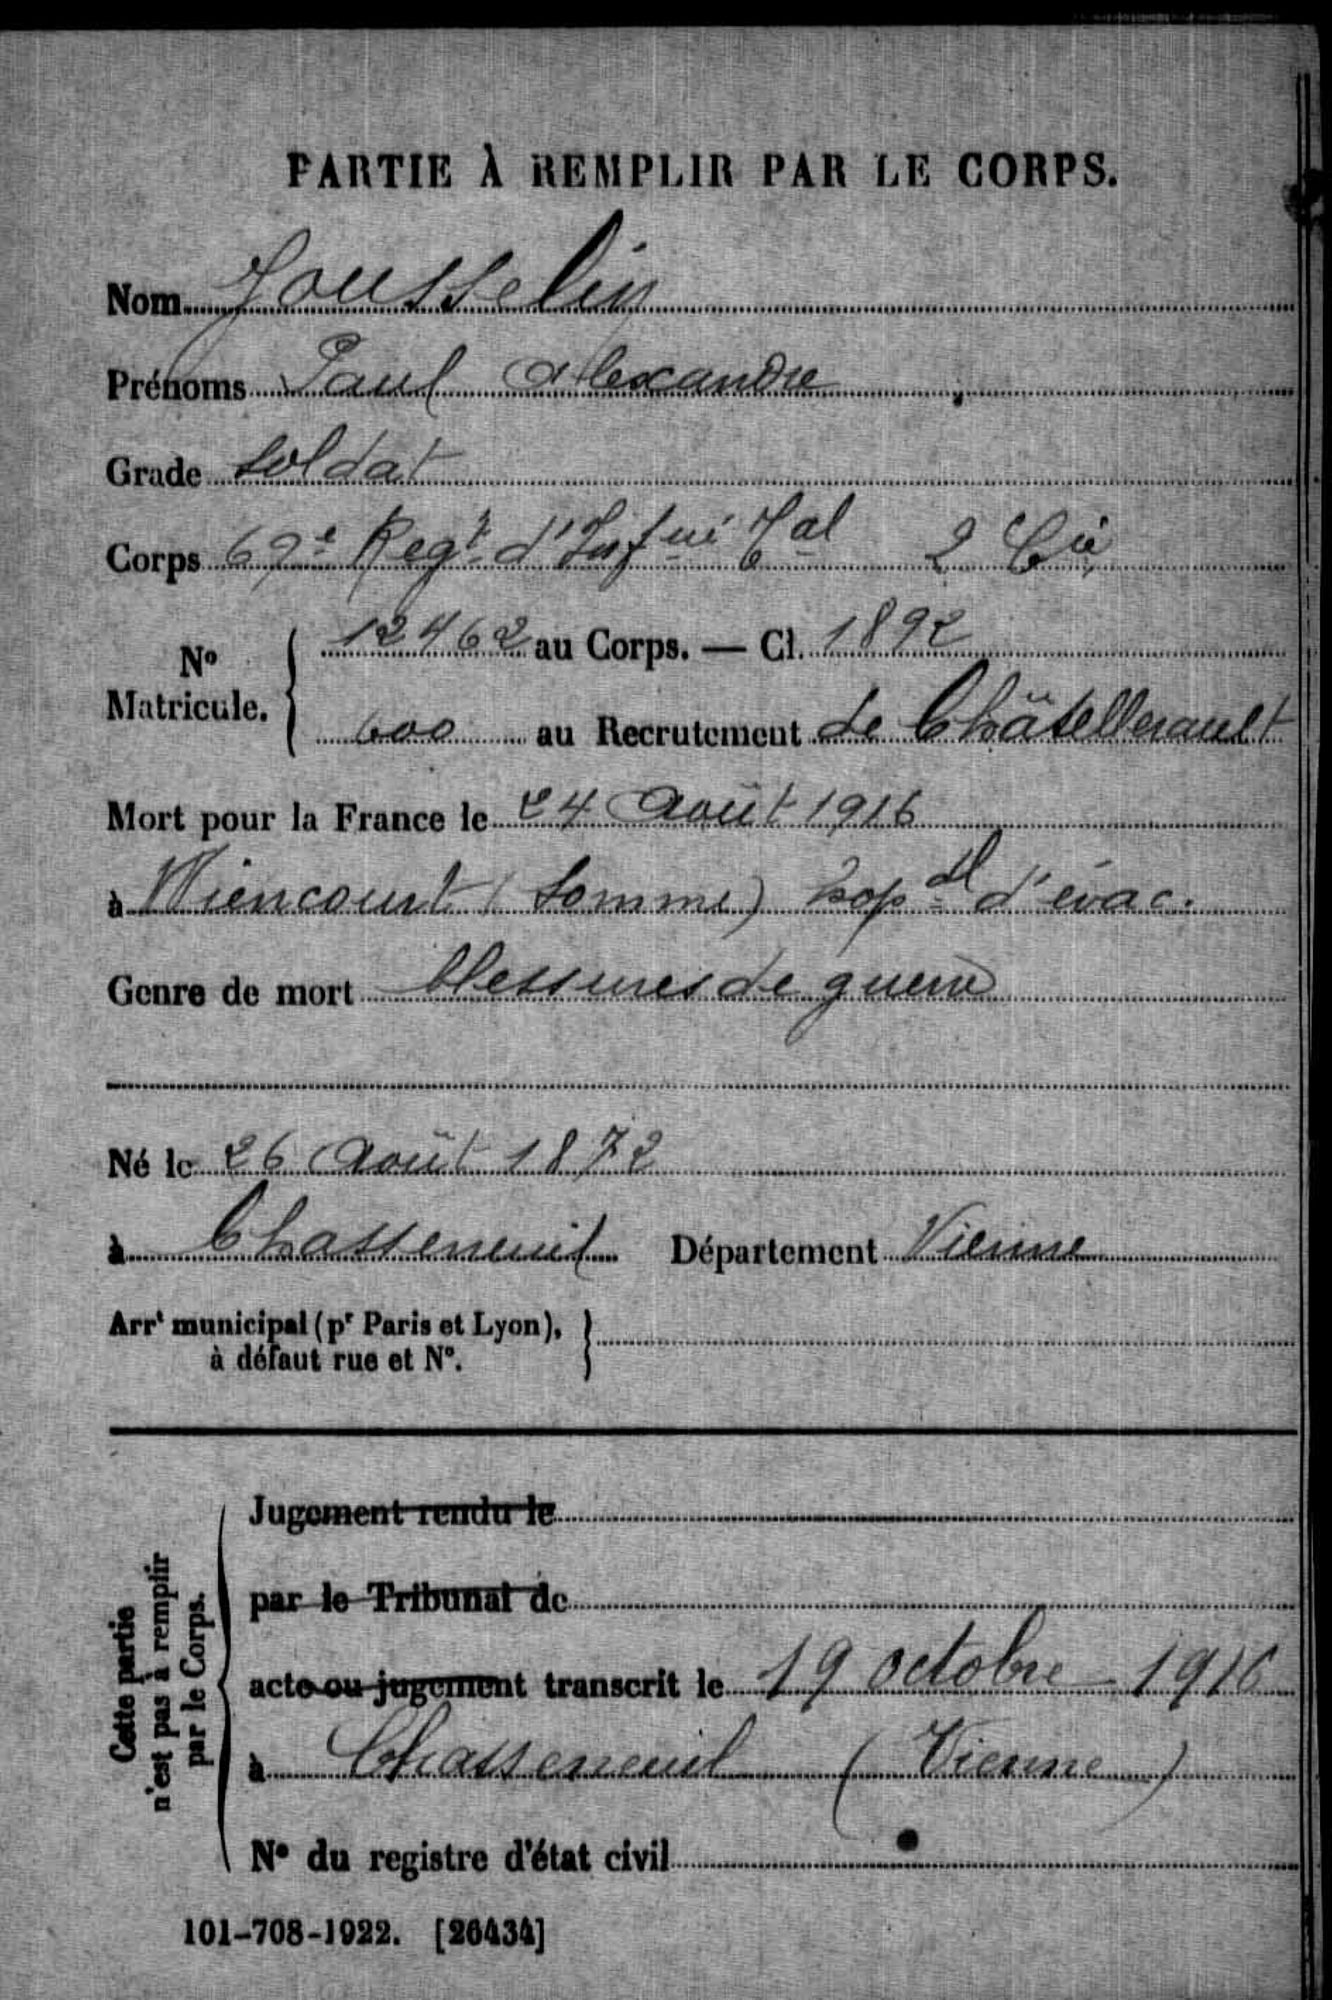 PARTIE À REMPLIR PAR LE CORPS.
Nom Jousselin
Prénoms Paul Alexandre
Grade Soldat
Corps 69e Regt d'Infrie Tal 2 Cie
No Matricule. 12462 au Corps. — Cl. 1892
600 au Recrutement de Châtellerault
Mort pour la France le 24 Août 1916
à Wiencourt (Somme) hopal d'évac.
Genre de mort blessures de guerre
Né le 26 Août 1872
à Chasseneuil Département Vienne
Arrt municipal (pr Paris et Lyon),
à défaut rue et No.
Cette partie
n'est pas à remplir
par le Corps.
Jugement rendu le
par le Tribunal de
acte ou jugement transcrit le 19 octobre 1916
à Chasseneuil (Vienne)
No du registre d'état civil
101-708-1922. [26434]